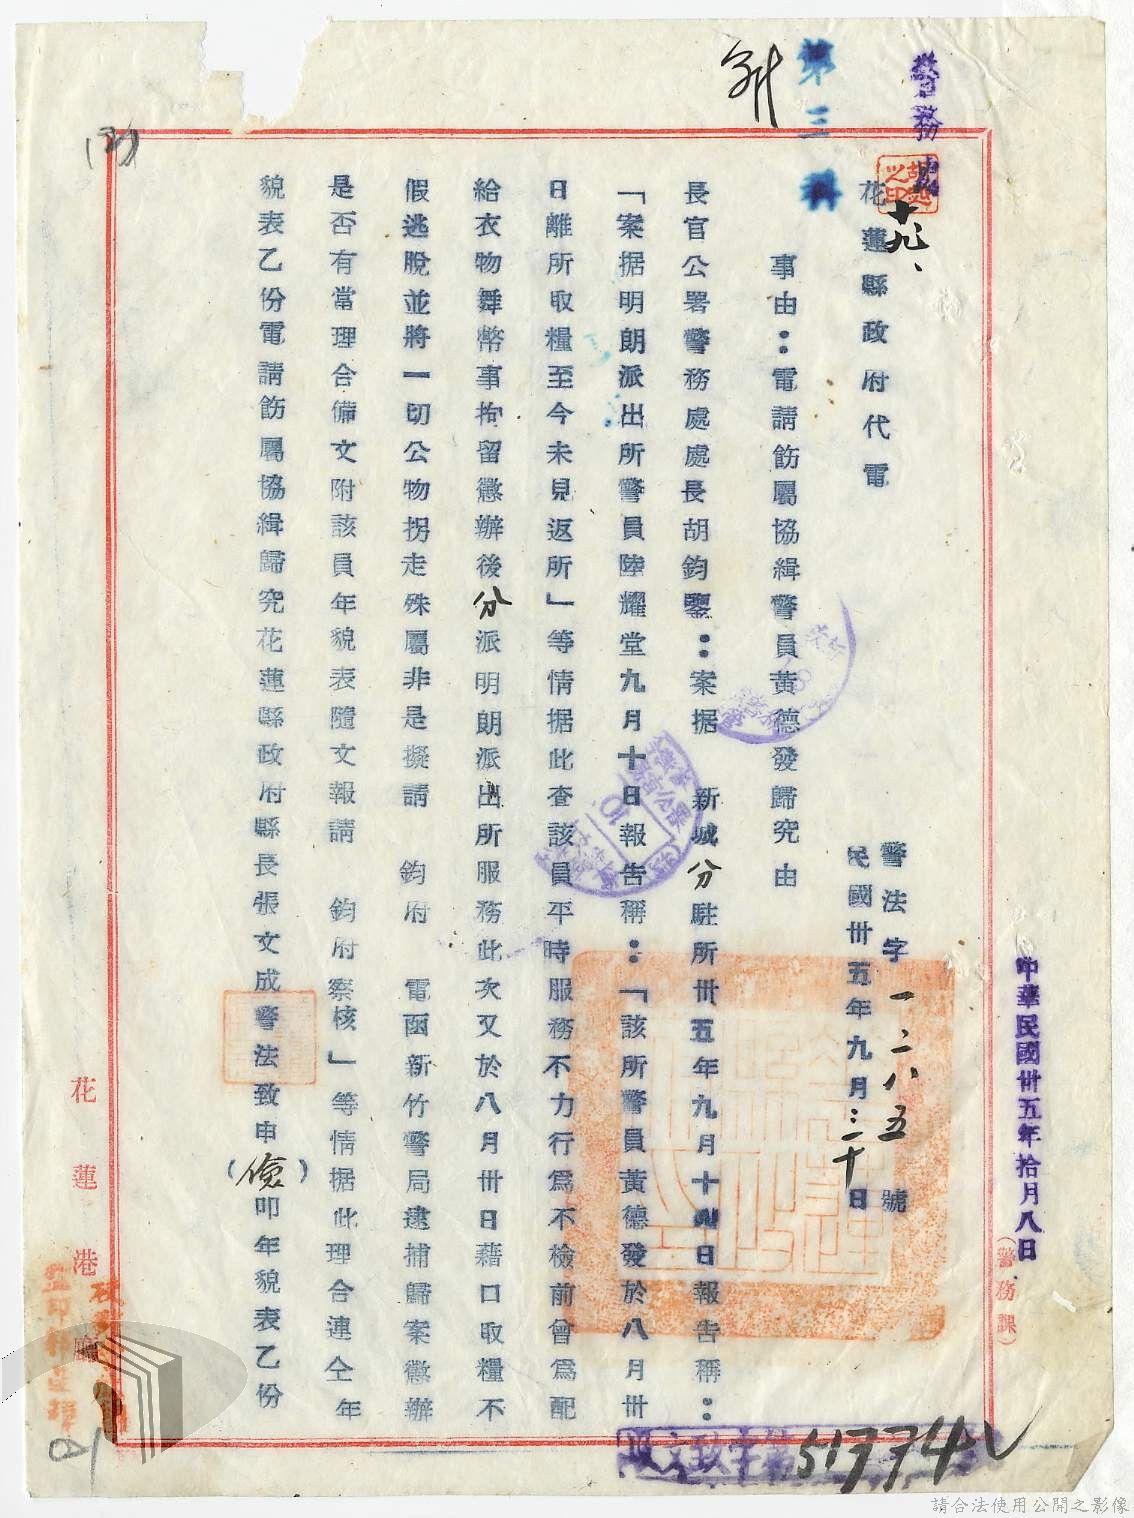 中華民國卅五年拾月八日
(警務課)
警務處
第三科
花蓮縣政府代電
警法字一二八五號
民國卅五年九月三十日
事由:電請飭屬協緝警員黃德發歸究由
長官公署警務處處長胡鈞鑒:案据 新城分駐所卅五年九月十九日報告稱:
「案据明朗派出所警員陸耀堂九月十日報告稱:「該所警員黃德發於八月卅
日離所取糧至今未見返所」等情据此查該員平時服務不力行為不檢前曾為配
給衣物舞幣事拘留懲辦後分派明朗派出所服務此次又於八月卅日藉口取糧不
假逃脫並將一切公物拐走殊屬非是擬請 鈞府 電函新竹警局逮捕歸案懲辦
是否有當理合備文附該員年貌表隨文報請 鈞府察核」等情据此理合連仝年
貌表乙份電請飭屬協緝歸究花蓮縣政府縣長張文成警法致申(儉)叩年貌表乙份
花蓮港廳
收文玖字第51774
請合法使用公開之影像